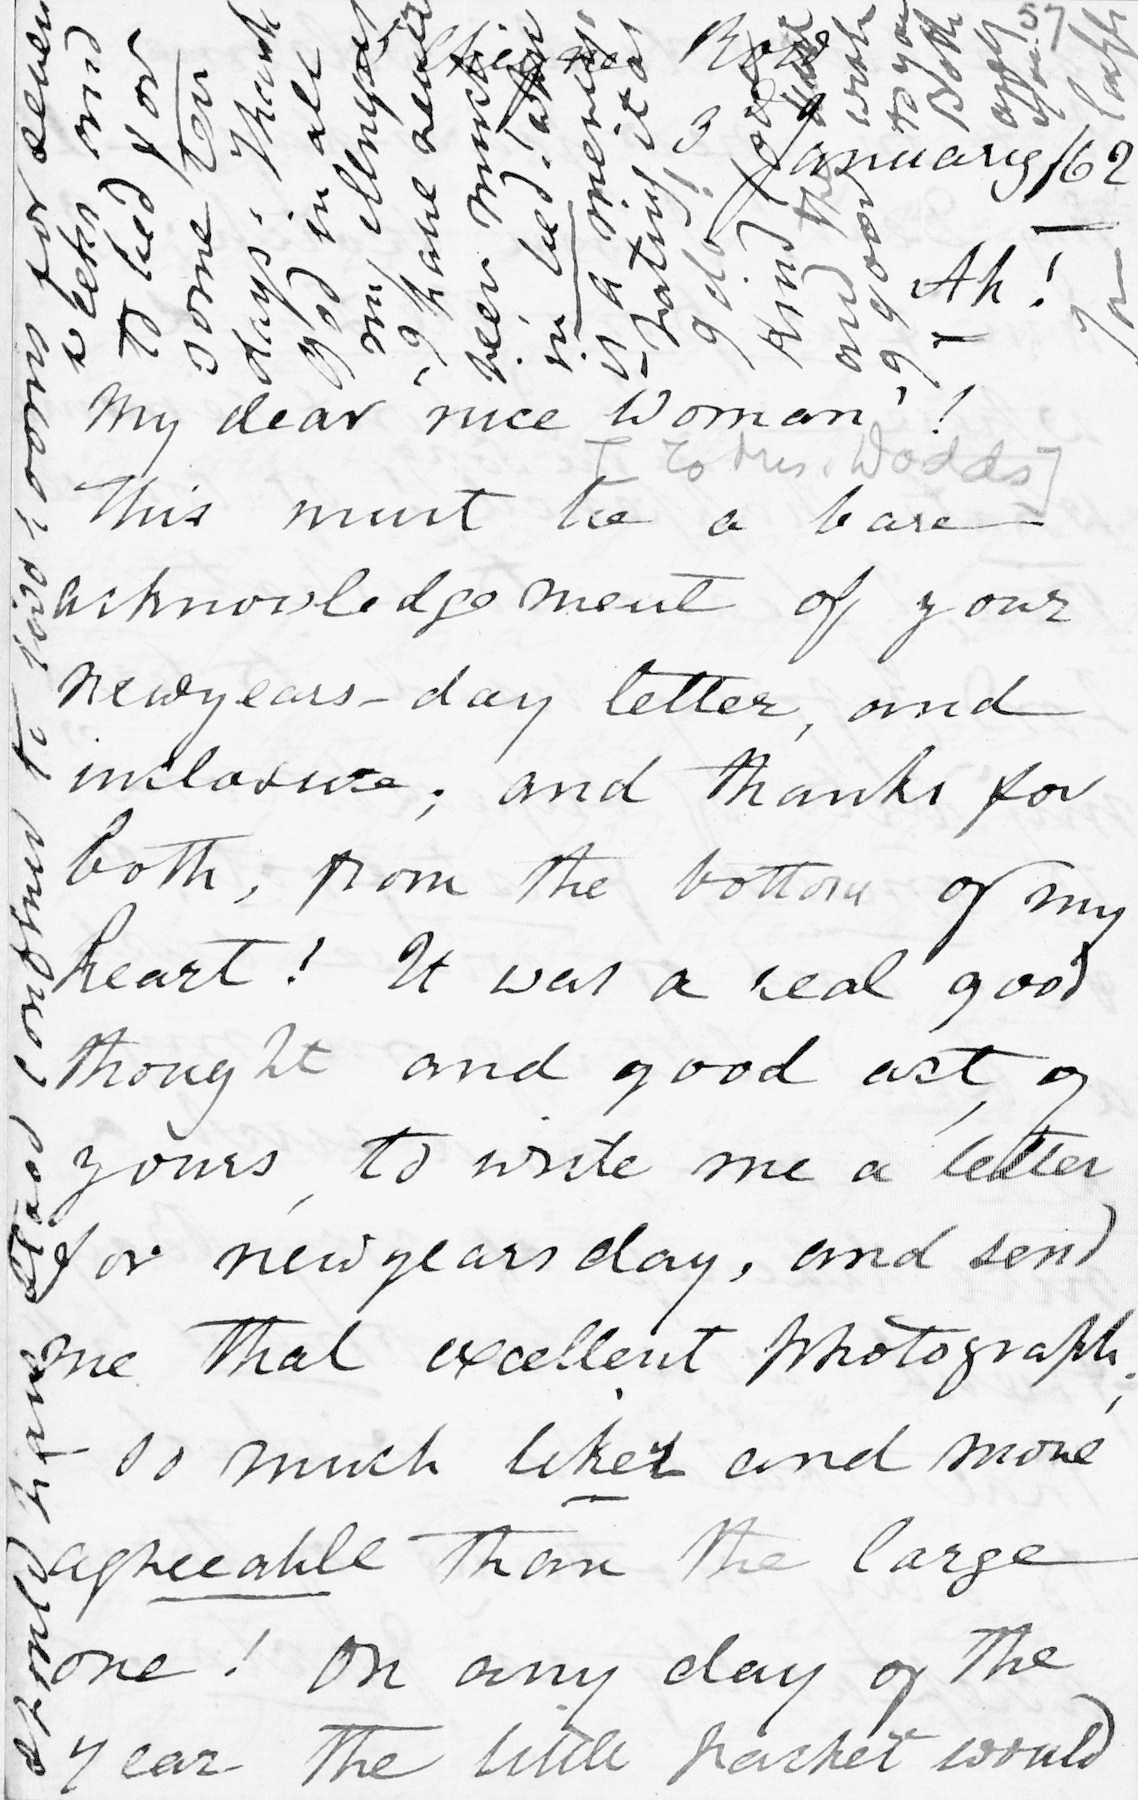 57
Cheyne Row
3 January/62
Ah!
My dear 'nice Woman'!
[To Mrs. Dodds]
This must be a bare
acknowledgement of your
newyears-day letter, and
inclosure; and thanks for
both, from the bottom of my
heart! It was a real good
thought and good act, of
yours, to write me a letter
for newyearsday, and send
me that excellent photograph;
– so much liker and more
agreeable than the large
one! On any day of the
year the little packet would
should have stood confined to two rooms for seven
weeks and
to bed for
some ten
days. Thank
God in all
my illnesses
I have never
been much
in bed.
is a mercy
hating it as
I do!
kind
and the
a good
wish
to you
Both